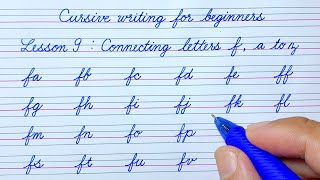 Cursive writing for beginners
Lesson 9 : Connecting letters f, a to z
fa fb fc fd fe ff
fg fh fi fj fk fl
fm fn fo fp
fs ft fu fv